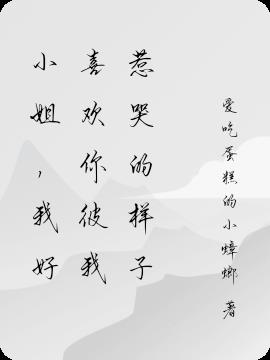 小姐，我好
喜欢你彼我
惹哭的样子
爱吃蛋糕的小蟑螂 著